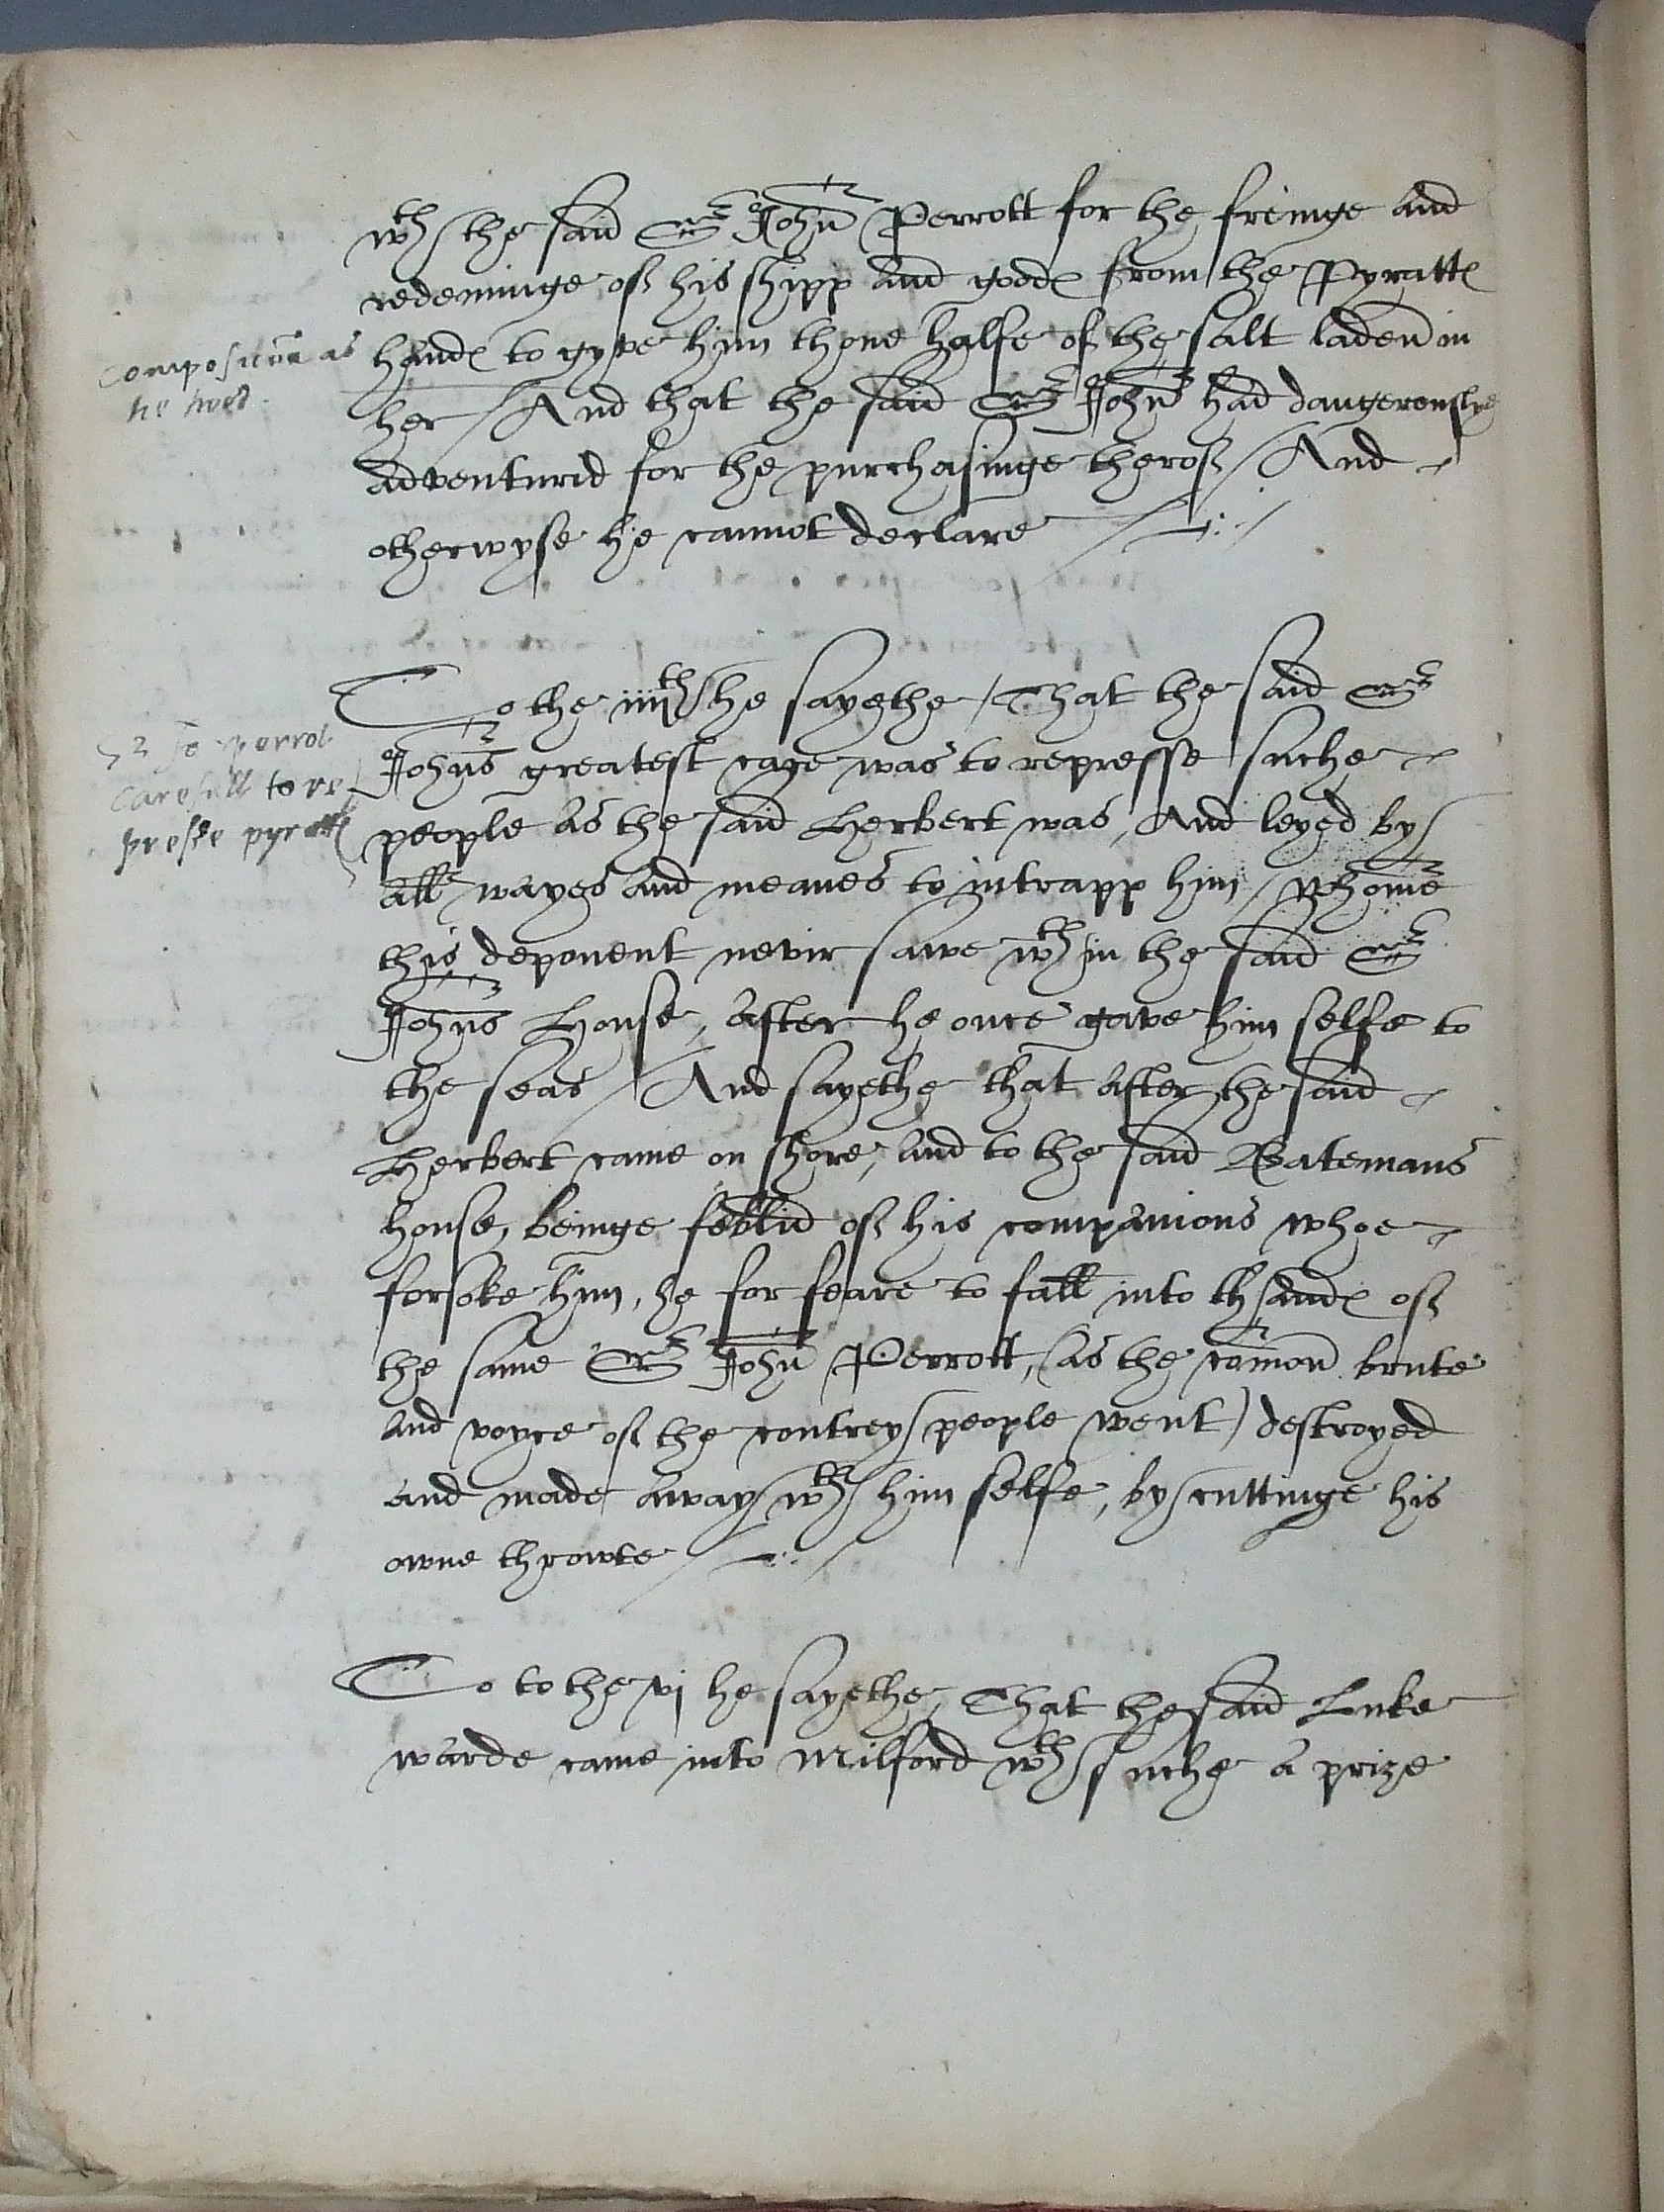 wth the said Sr John Perrott for the freinge and
redeminge of his shipp and goodes from the Pyrattes
Composicion as
he hard
handes to gyve him thone halfe of the salt laden in
her / And that the said Sr John had dangerouslye
adventurid for the purchasinge therof / And
otherwyse he cannot declare
To the iiijth he sayethe / That the said Sr
Sr Jo: perrot
carefull to re
presse pyrattes
Johns greatest care was to represse suche
people as the said Herbert was, And leyed by
all wayes and meanes to intrapp him / whome
this deponent nevir sawe wthin the said Sr
Johns House, after he once gave him selfe to
the seas / And sayethe that after the said
Herbert came on shore, and to the said Batemans
house, beinge feblid of his companions whoe
forsoke him, he for feare to fall into thandes of
the same Sr John Perrott, (as the comon brute
and voyce of the contrey people went) destroyed
and made away wth him selfe, by cuttinge his
owne throwte
To to the vj he sayethe, That the said Luke
warde came into Milford wth suche a prize